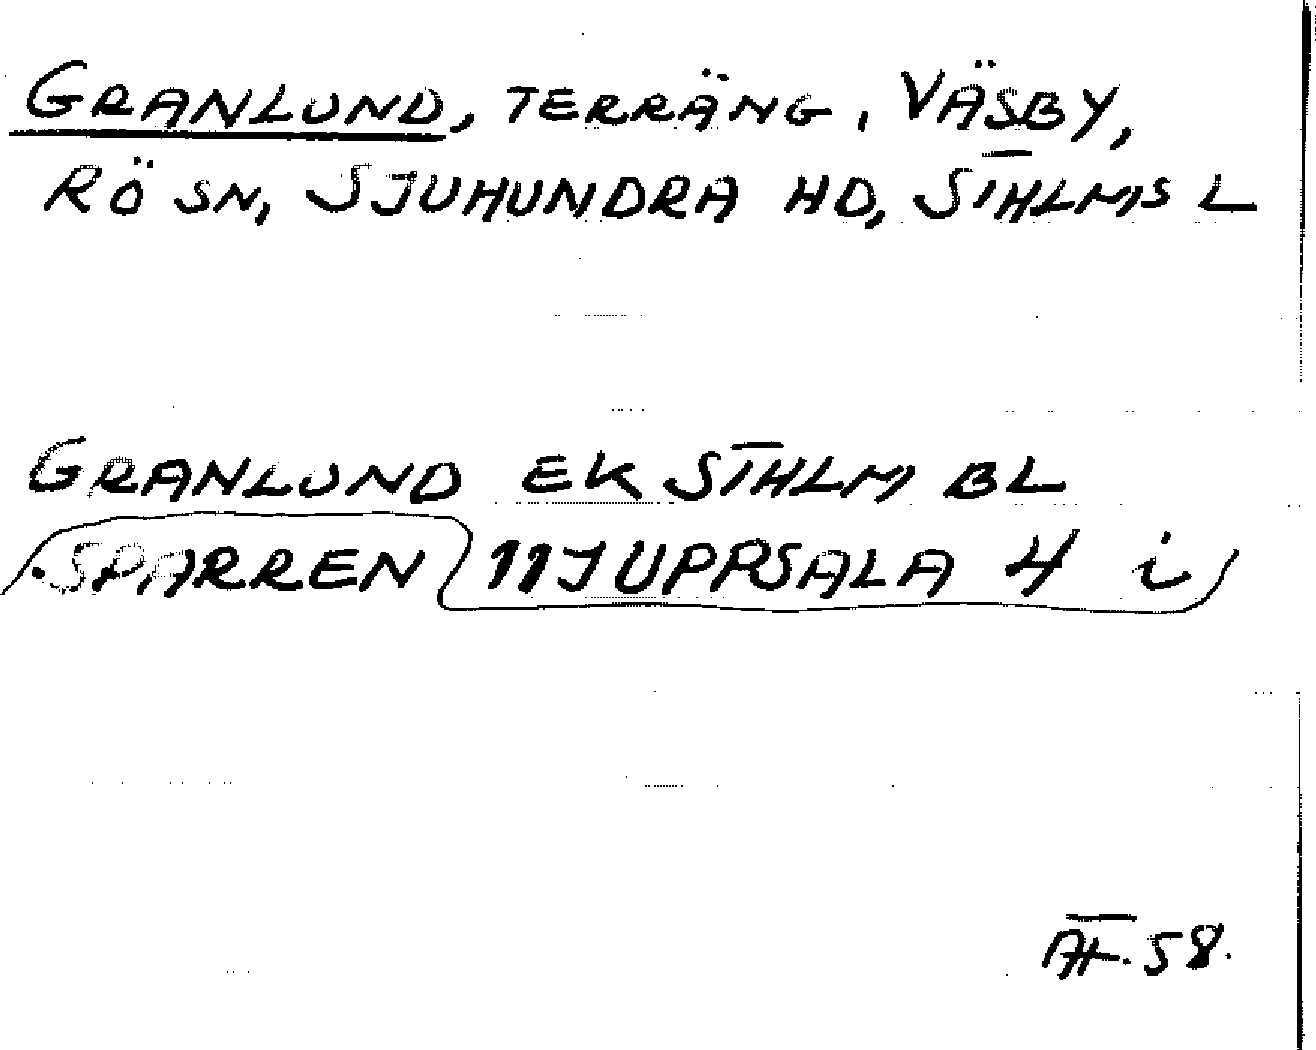 GRANLUND, TERRÄNG, VÄSBY,
RÖ SN, SJUHUNDRA HD, STHLMS L
GRANLUND EK STHLM BL
SPARREN 11J UPPSALA 4 i
AF. 58.